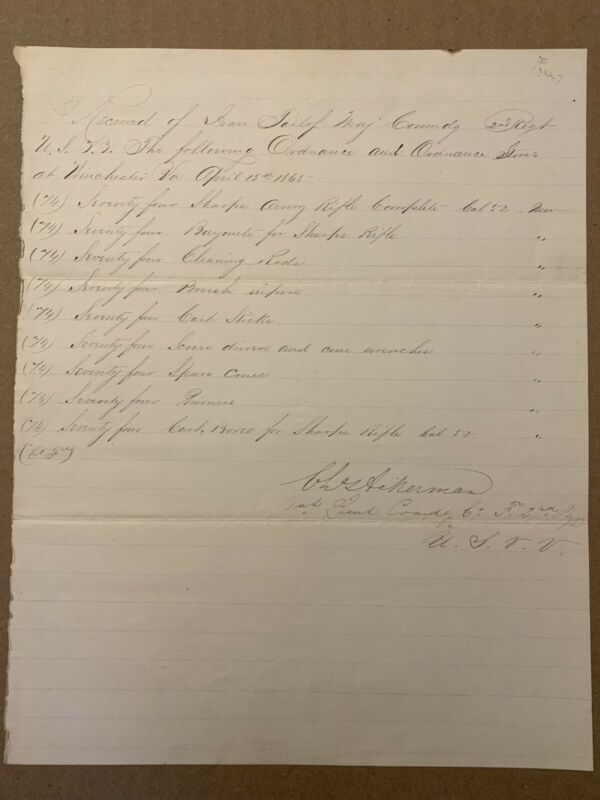 Received of Ivan Tailof Maj Commdg 2nd Regt
U. S. V. V. The following Ordnance and Ordnance Stores
at Winchester Va April 13th 1865
(74) Seventy four Sharps Army Rifle Complete Cal 52 New
(74) Seventy four Bayonets for Sharps Rifle "
(74) Seventy four Cleaning Rods "
(74) Seventy four Brush wipers "
(74) Seventy four Cart Sticks "
(74) Seventy four Screw drivers and cone wrenches "
(74) Seventy four Spare Cones "
(74) Seventy four Primers "
(74) Seventy four Cart. Boxes for Sharps Rifle Cal 52 "
(Co F)
Chs Ackerman
1st Lieut. Comdg Co. F. 2nd Regt
U. S. V. V.